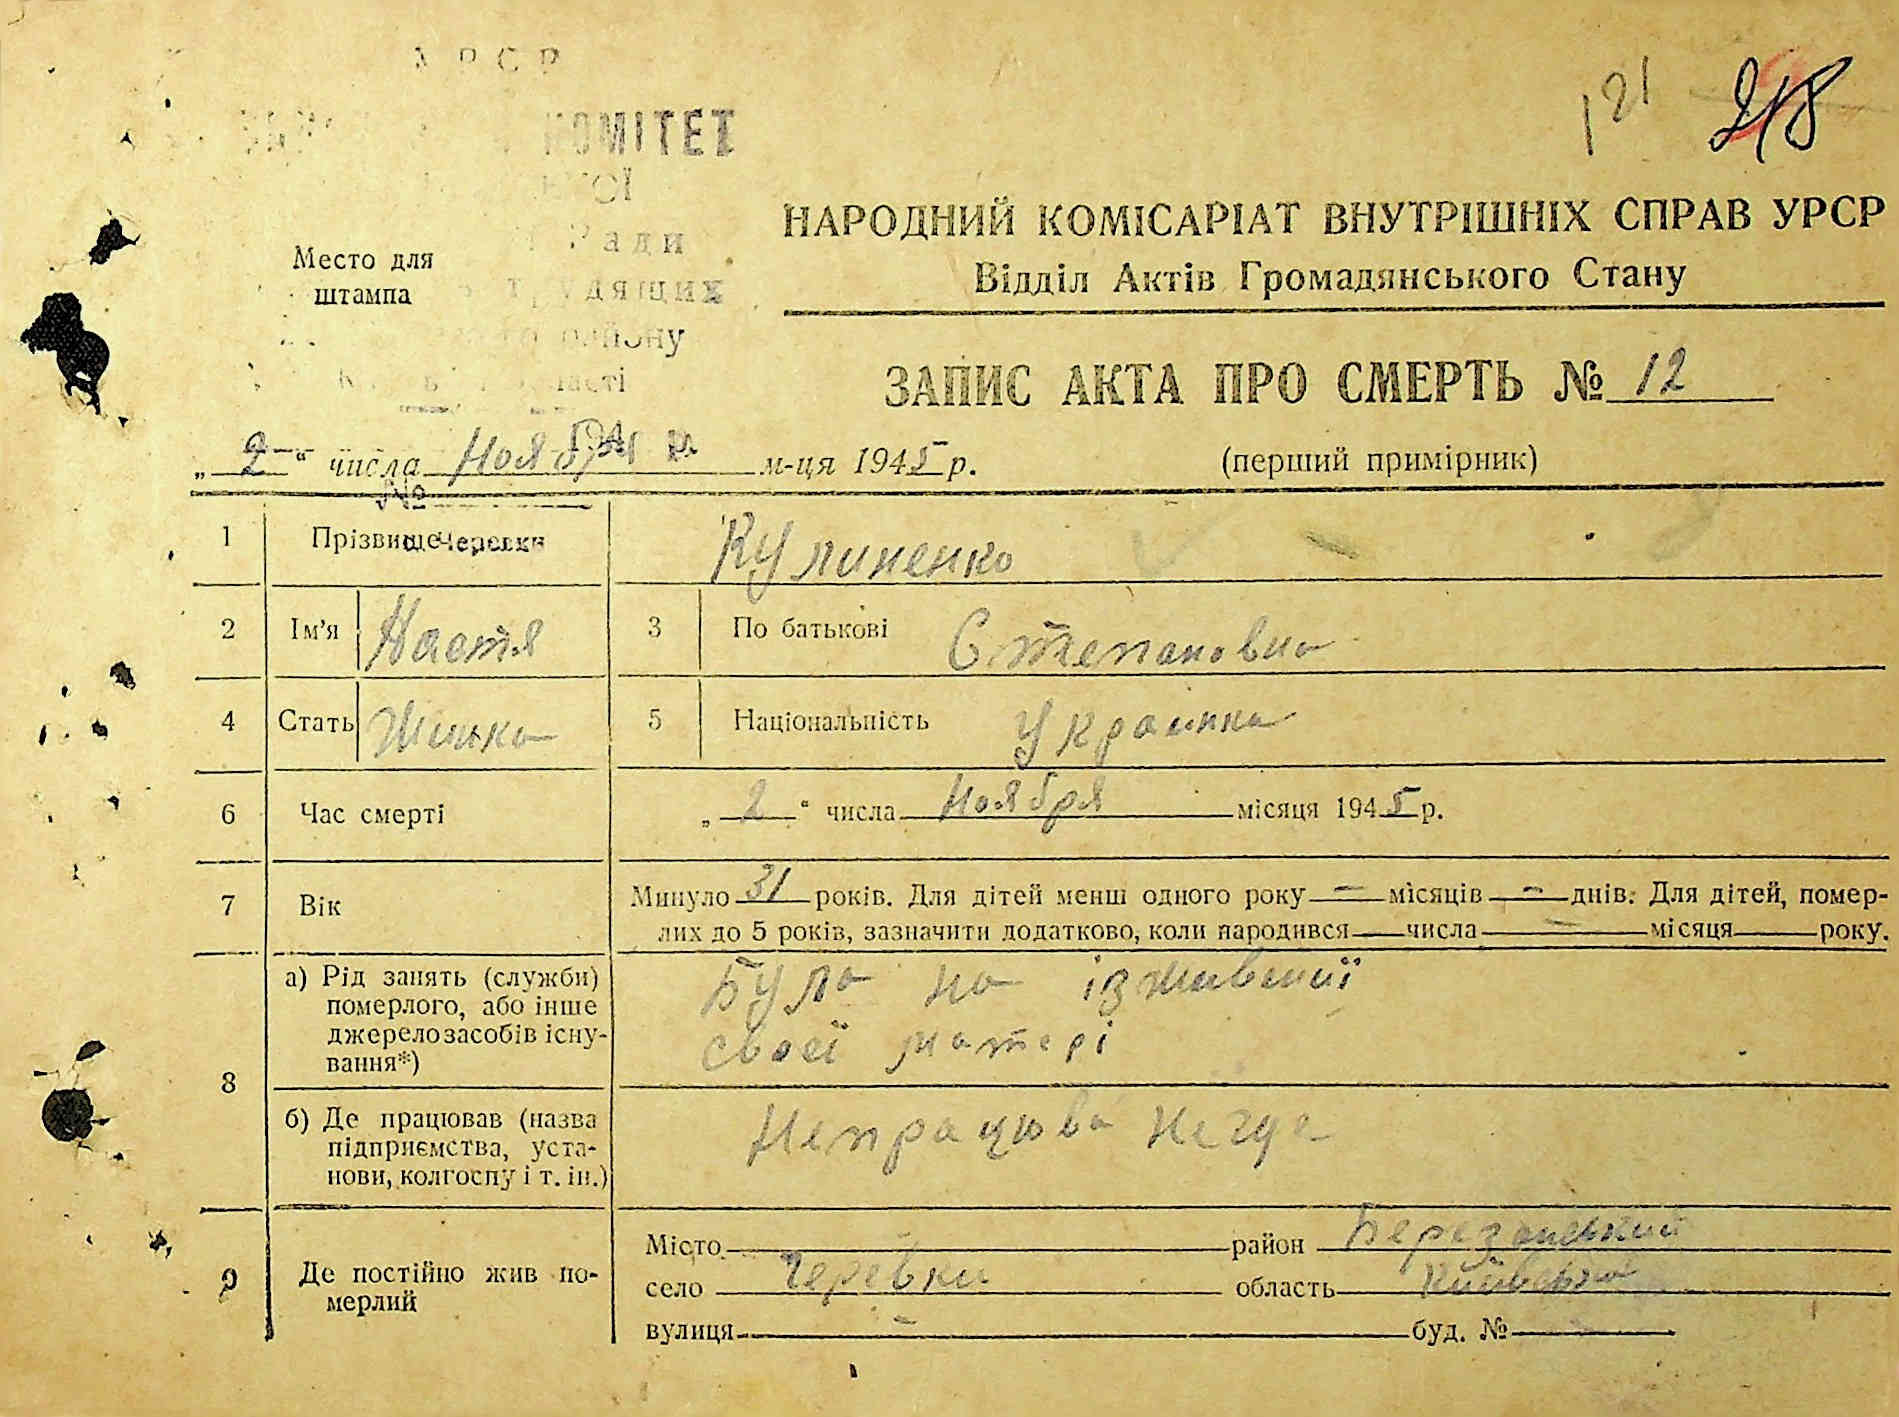 УРСР
КОМІТЕТ
Ради
трудящих
району
області
121 218
Место для
штампа
НАРОДНИЙ КОМІСАРІАТ ВНУТРІШНІХ СПРАВ УРСР
Відділ Актів Громадянського Стану
ЗАПИС АКТА ПРО СМЕРТЬ № 12
„ 2 “ числа Ноября м-ця 1945 р.
(перший примірник)
№
с. Черевки
1 Прізвище Кулиненко
2 Ім'я Настя 3 По батькові Степановна
4 Стать Жинка 5 Національність Украинка
6 Час смерті „ 2 “ числа Ноября місяця 1945 р.
7 Вік Минуло 31 років. Для дітей менш одного року — місяців — днів. Для дітей, помер-
лих до 5 років, зазначити додатково, коли народився числа — місяця року.
8 а) Рід занять (служби)
померлого, або інше
джерело засобів існу-
вання*)
Була на іживенії
своєї матері
б) Де працював (назва
підприємства, уста-
нови, колгоспу і т. ін.)
Непрацюва негде
9 Де постійно жив по-
мерлий
Місто — район Березанський
село Черевки область Київська
вулиця — буд. №